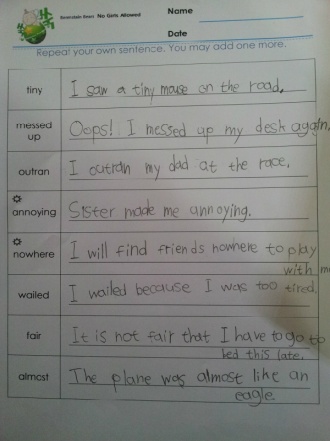 Berenstain Bears No Girls Allowed
Name
Date
Repeat your own sentence. You may add one more.
tiny
I saw a tiny mouse on the road.
messed up
Oops! I messed up my desk again.
outran
I outran my dad at the race.
annoying
Sister made me annoying.
nowhere
I will find friends nowhere to play
with me
wailed
I wailed because I was too tired.
fair
It is not fair that I have to go to
bed this late.
almost
The plane was almost like an
eagle.